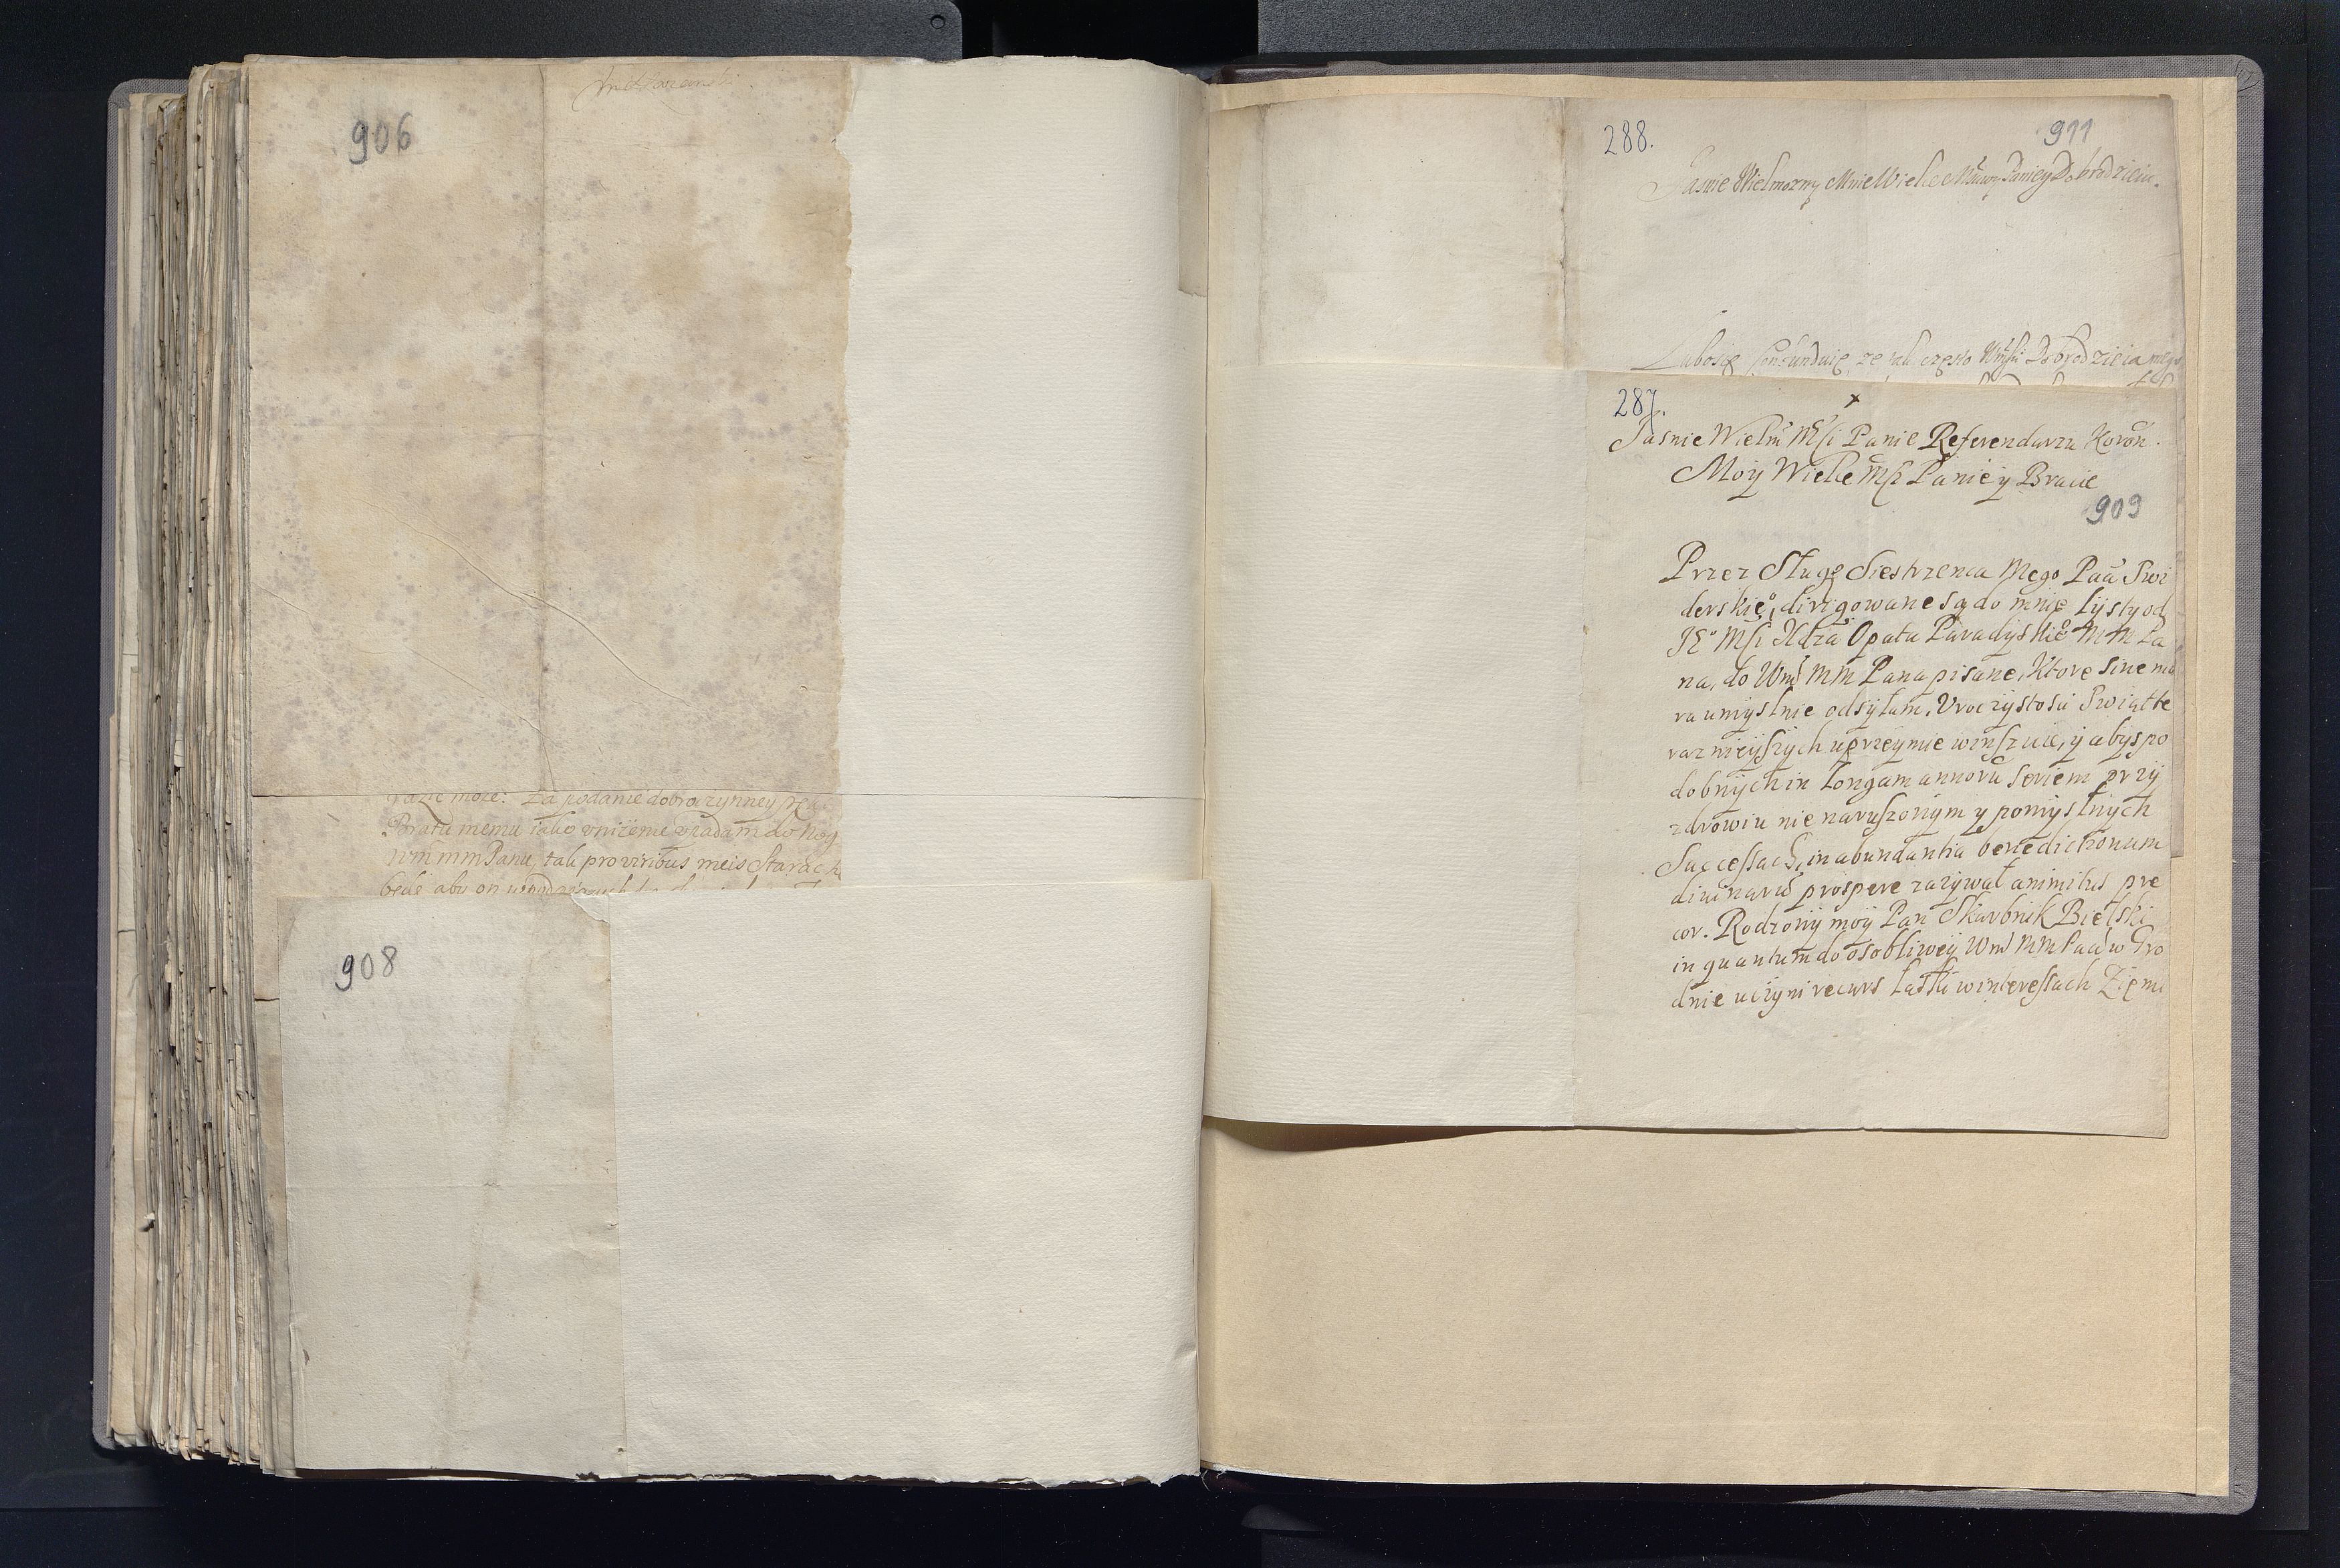 906
gdzie może: Za podanie dobroczynney ręki
Bratu memu iako vniżenie vpadam do nog
Wm mm Panu, tak pro viribus meis starać
będę aby on
908
288.
911
Jasnie Wielmozny Mnie Wielce Mściwy Panie y Dobrodzieiu.
Lubo się confunduię, ze tak często Wmści Dobrodzieia mego
287.
Jasnie Wielm Mſci Panie Referendarzu Koron.
Moÿ Wielce Mſci Panie y Bracie
909
Przez Sługę Siestrzenca Mego Paa Swi
derskie°, dirigowane są do mnie Lÿsty od
Je° Mſci Xdza Opata Paradÿskie° M M Pa
na, do Wm̃ MM Pana pisane, Ktore sine mo
ra umyslnie odsÿłam. Vroczÿstosci Swiątte
raznieÿszÿch uprzeÿmie winszuię, ÿ abÿs po
dobnÿch in Longam annorũ Seriem przÿ
zdrowiu nienaruszonÿm y pomÿslnÿch
Successach, in abundantia benedictionum
divinarũ prospere zazÿwał animitus pre
cor. Rodzonÿ moÿ Pan Skarbnik Bielski
in quantum do osobliweÿ Wm̃ MM Paa w Gro
dnie uczÿni recurs Łaski w interessach Ziemi